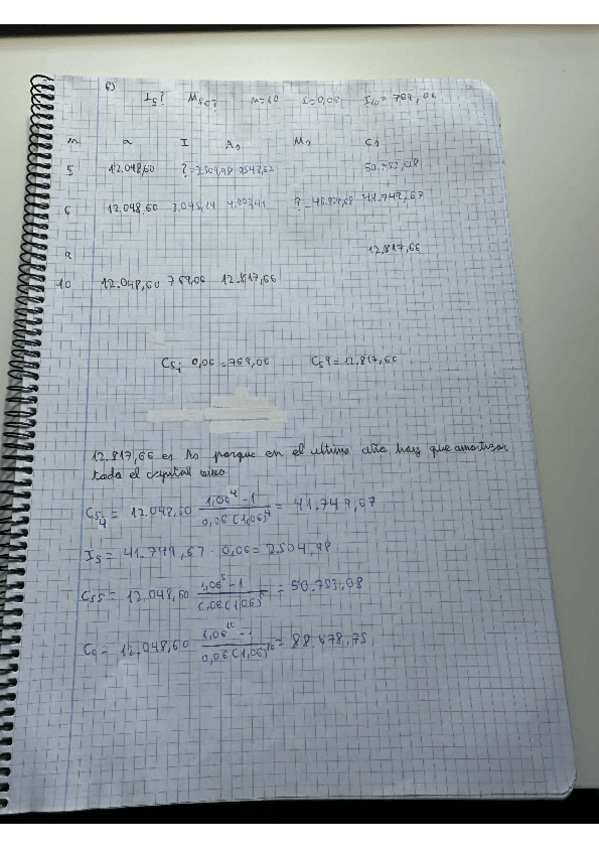 I5? M5? n=10 i=0,06 I10=769,06
n a I As Ms Cs
5 12.048,60 ?=2504,98 9543,62 50.753,08
6 12.048,60 3.045,19 ?=46.929,08 41.749,67
12.817,66
10 12.048,60 769,06 12.817,66
Cs; 0,06=769,06 Cs9=12.817,66
12.817,66 es As porque en el ultimo año hay que amortizar
todo el capital vivo
Cs4= 12.048,60 1,06^4-1 / 0,06(1,06)^4 = 41.749,67
I5= 41.749,67 · 0,06= 2.504,98
Cs5= 12.048,60 1,06^5-1 / 0,06(1,06)^5 = 50.753,08
C0= 12.048,60 1,06^10-1 / 0,06(1,06)^10 = 88.678,75